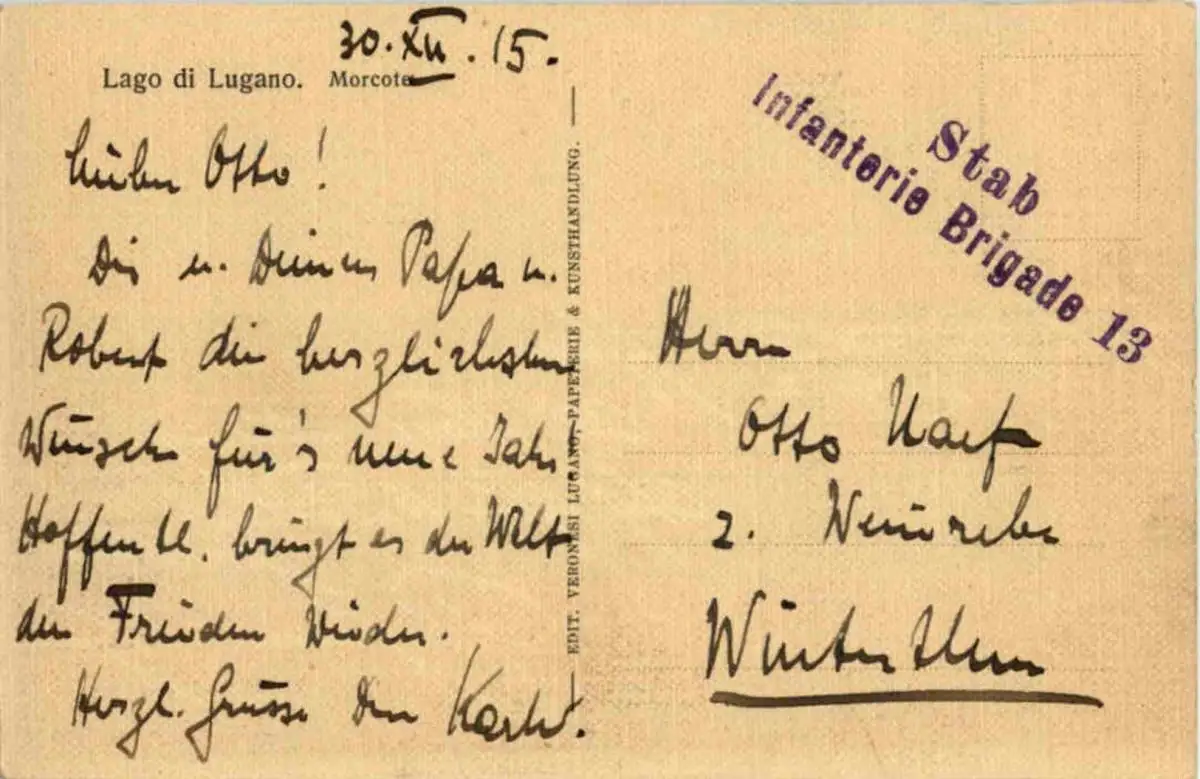 30.XII.15.
Lago di Lugano. Morcote
Lieber Otto!
Dir u. Deinem Papa u.
Robert die herzlichsten
Wünsche für's neue Jahr
Hoffentl. bringt es der Welt
den Frieden wieder.
Herzl. Grüsse Dein Karl.
EDIT. VERONESI LUGANO, PAPETERIE & KUNSTHANDLUNG.
Stab
Infanterie Brigade 13
Herrn
Otto Naef
z. Weinrebe
Winterthur